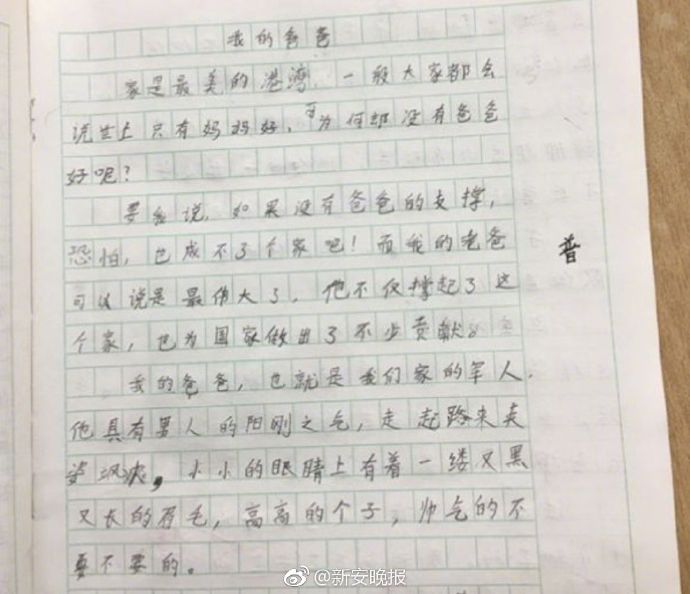 我的爸爸
家是最美的港湾，一般大家都会
说世上只有妈妈好，可为何却没有爸爸
好呢？
要我说，如果没有爸爸的支撑，
恐怕，也成不了个家吧！而我的老爸
可以说是最伟大了，他不仅撑起了这
个家，也为国家做出了不少贡献。
我的爸爸，也就是我们家的军人，
他具有男人的阳刚之气，走起路来英
姿飒爽，小小的眼睛上有着一缕又黑
又长的眉毛，高高的个子，帅气的不
要不要的。
普
@新安晚报